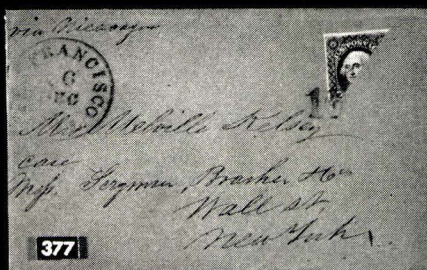 via Nicaragua
FRANCISCO
6
DEC
U.S. POSTAGE
Mrs Melville Kelsey
care
Messrs. Brasher & Co
Wall st.
New York
377